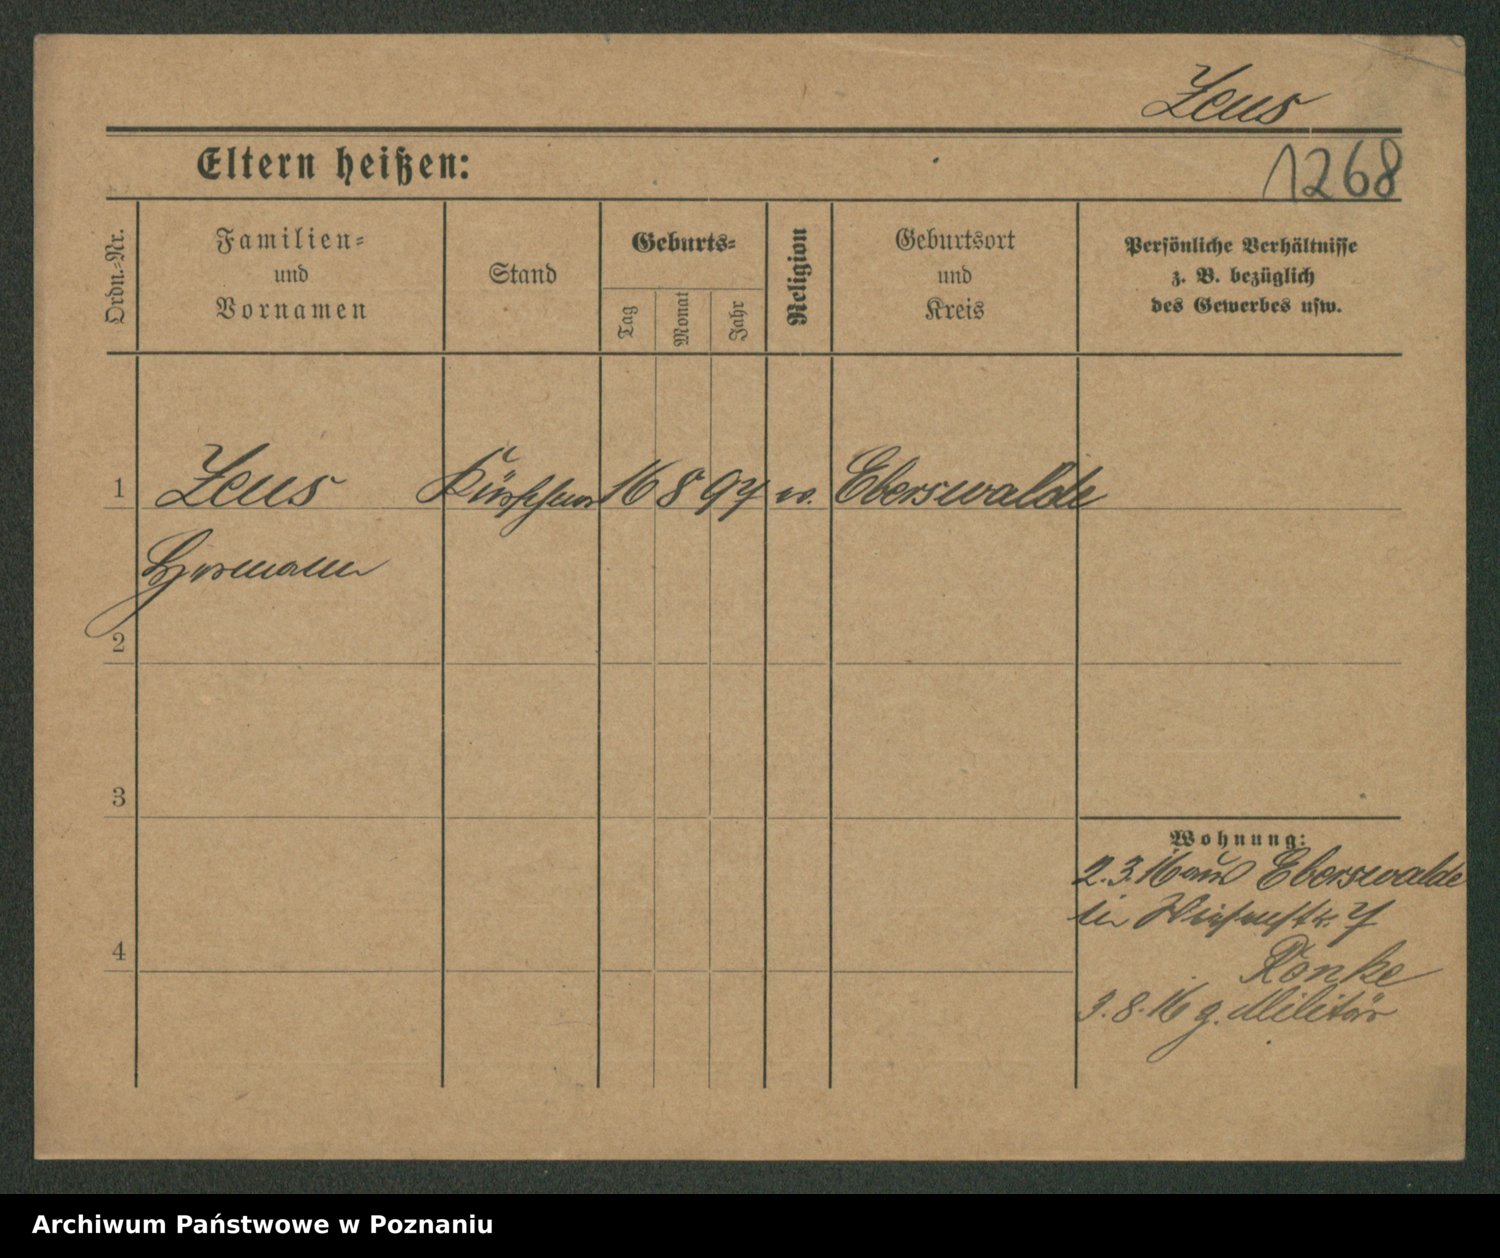 Zeus
Eltern heißen:
1268
Ordn.-Nr.
Familien-
und
Vornamen
Stand
Geburts-
Tag
Monat
Jahr
Religion
Geburtsort
und
Kreis
Persönliche Verhältnisse
z. B. bezüglich
des Gewerbes usw.
1
Zeus Kürschner 16 8 97 ev. Eberswalde
Hermann
2
3
4
Wohnung:
2.3.16 aus Eberswalde
in Wiesenstr. 7
Ronke
3.8.16 z. Militär
Archiwum Państwowe w Poznaniu